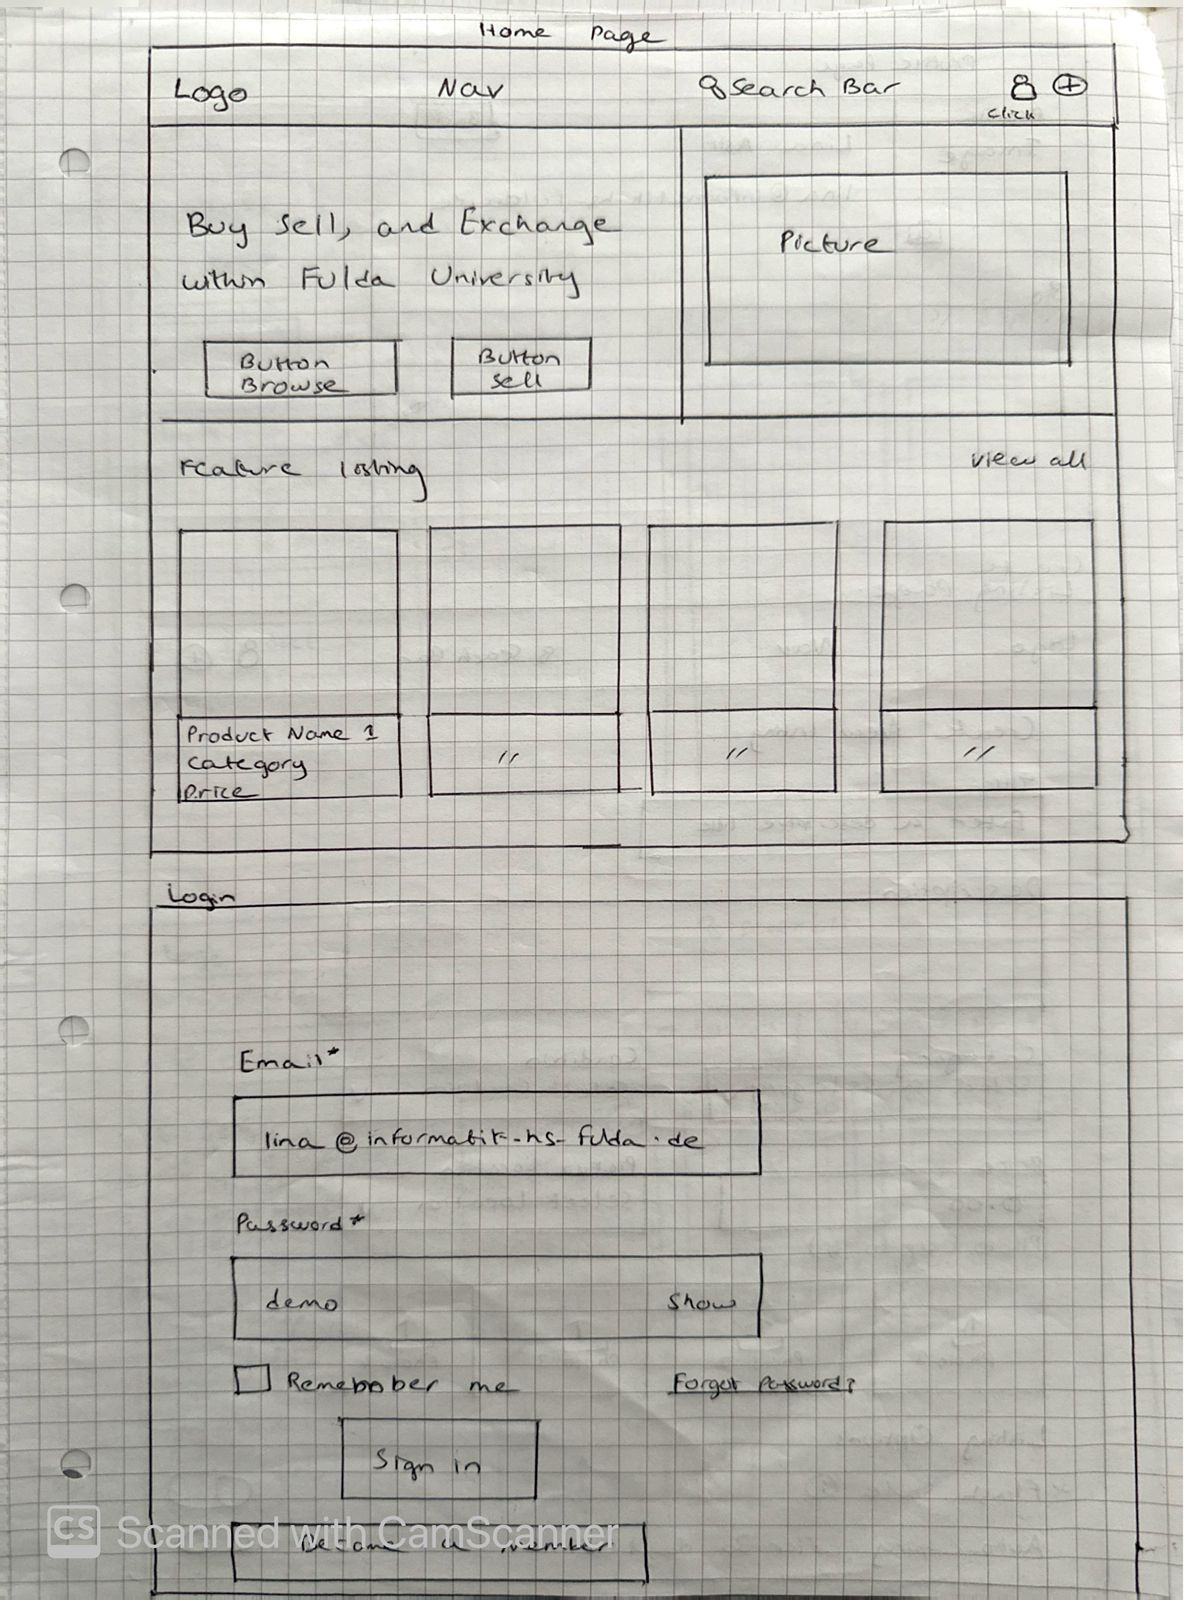 Home Page
Logo Nav Search Bar
click
Buy Sell, and Exchange
within Fulda University
Picture
Button
Browse
Button
Sell
Feature listing
View all
Product Name 1
Category
Price
"
"
"
Login
Email*
lina@informatik-hs-fulda.de
Password*
demo Show
Remember me Forgot Password?
Sign in
Become a member
CS Scanned with CamScanner